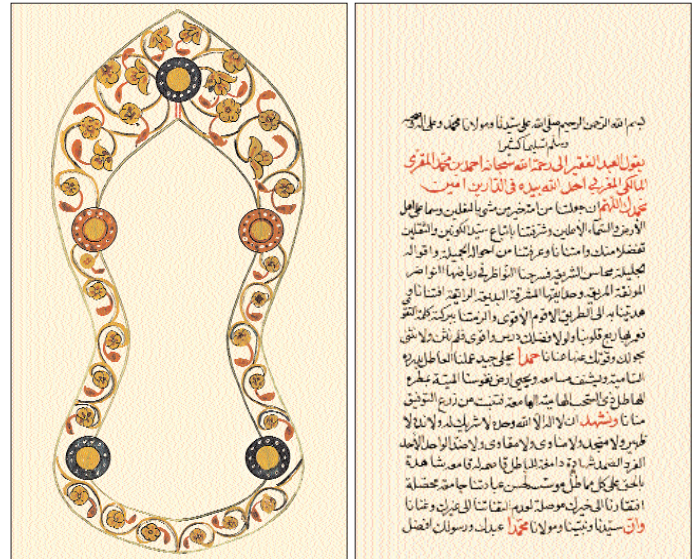 بسم الله الرحمن الرحيم صلى الله على سيدنا ومولانا محمد وعلى اله وصحبه
وسلم تسليما كثيرا
يقول العبد الفقير الى رحمة الله سبحانه احمد بن محمد المقرى
المالكى المغربى اخذ الله بيده فى الدارين امين
نحمدك اللهم ان جعلتنا من امة خير من مشى بالنعلين وسما على اهل
الارض والسماء الاعلين وشرفتنا باتباع سيد الكونين والثقلين
تفضلا منك وامتنانا وعرفتنا من احواله الجميلة واقواله
الجليلة محاسن الشريعة فسرحنا النواظر فى رياضها النواضر
المونقة المريعة وحدايقها المشرقة البديعة الرايقة افتنانا وفى
هديتنا به الى الطريق الاقوم الاقوى والزمتنا ببركته كلمة التقوى
فعمر بها ربع قلوبنا ولولا فضلك درس واقوى فلم نثن ولا نثنى
بحولك وقوتك عنها عنانا حمدا يحلى جيد عملنا العاطل بدرره
الثامينة ويشنف مسامعه ويحيى ارض نفوسنا الميتة بمطره
الهاطل ذى السحب الهامية الهامعة فتنبت من زرع التوفيق
منانا ونشهد ان لا اله الا الله وحده لا شريك له ولا ند له ولا
ظهير ولا منجد ولا مناوى ولا مقاوى ولا ضد الواحد الاحد
الفرد الصمد شهادة دامغة للباطل قاصمة له قامعة شاهدة
بالحق على كل مماطل موسسة لحسن عبادتنا جامعة محصلة
افتقارنا الى خيرك موصلة لعدم التفاتنا الى غيرك وغنانا
وان سيدنا ونبينا ومولانا محمدا عبدك ورسولك افضل